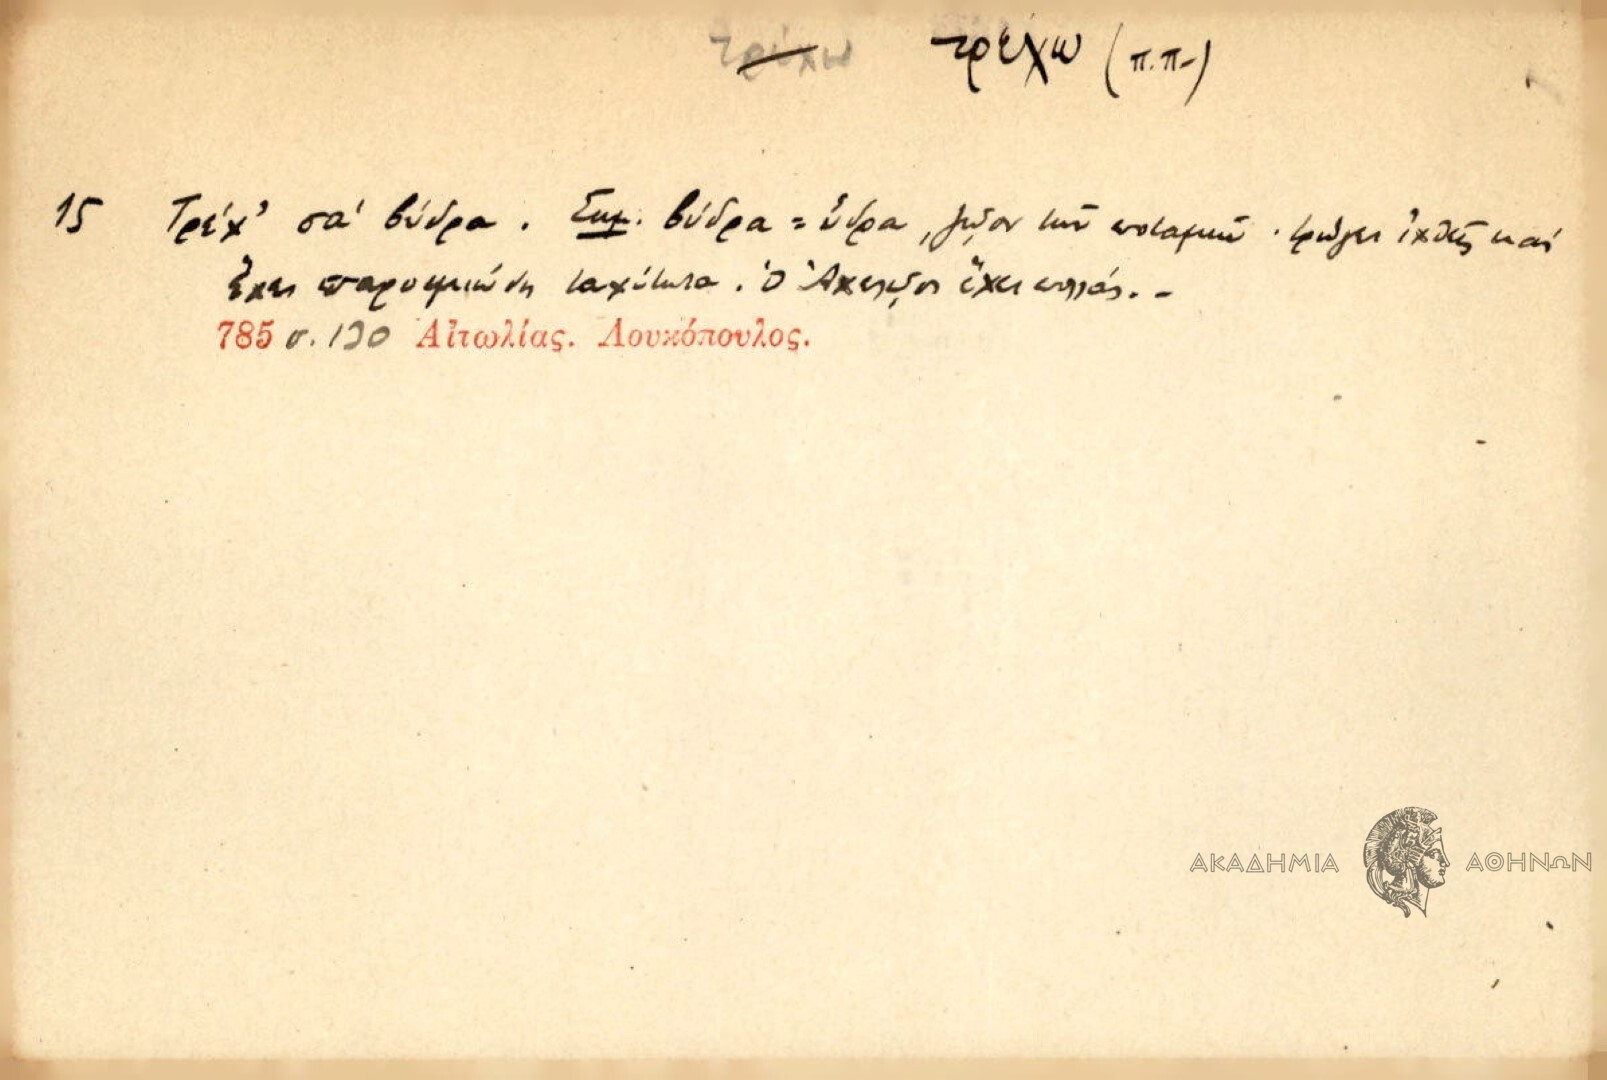 τρέχω τρέχω (π.π.)
15 Τρέχ' σα' βύδρα. Σημ. βύδρα = ὕδρα, ζῷον τῶν ποταμῶν. τρώγει ἰχθῦς καὶ
ἔχει παροιμιώδη ταχύτητα. Ὁ Ἀχελῷος ἔχει πολλάς. -
785 σ. 130 Αἰτωλίας. Λουκόπουλος.
ΑΚΑΔΗΜΙΑ ΑΘΗΝΩΝ